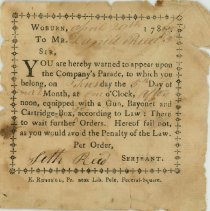 WOBURN, April 178
To Mr. David Reed
SIR,
YOU are hereby warned to appear upon
the Company's Parade, to which you
belong, on the Day of
Month, at o'Clock, After
noon, equipped with a Gun, Bayonet and
Cartridge-Box, according to Law: There
to wait further Orders. Hereof fail not,
as you would avoid the Penalty of the Law.
Per Order,
Seth Reed SERJEANT.
E. Russell, Pr. next Lib. Pole, Federal-Square.